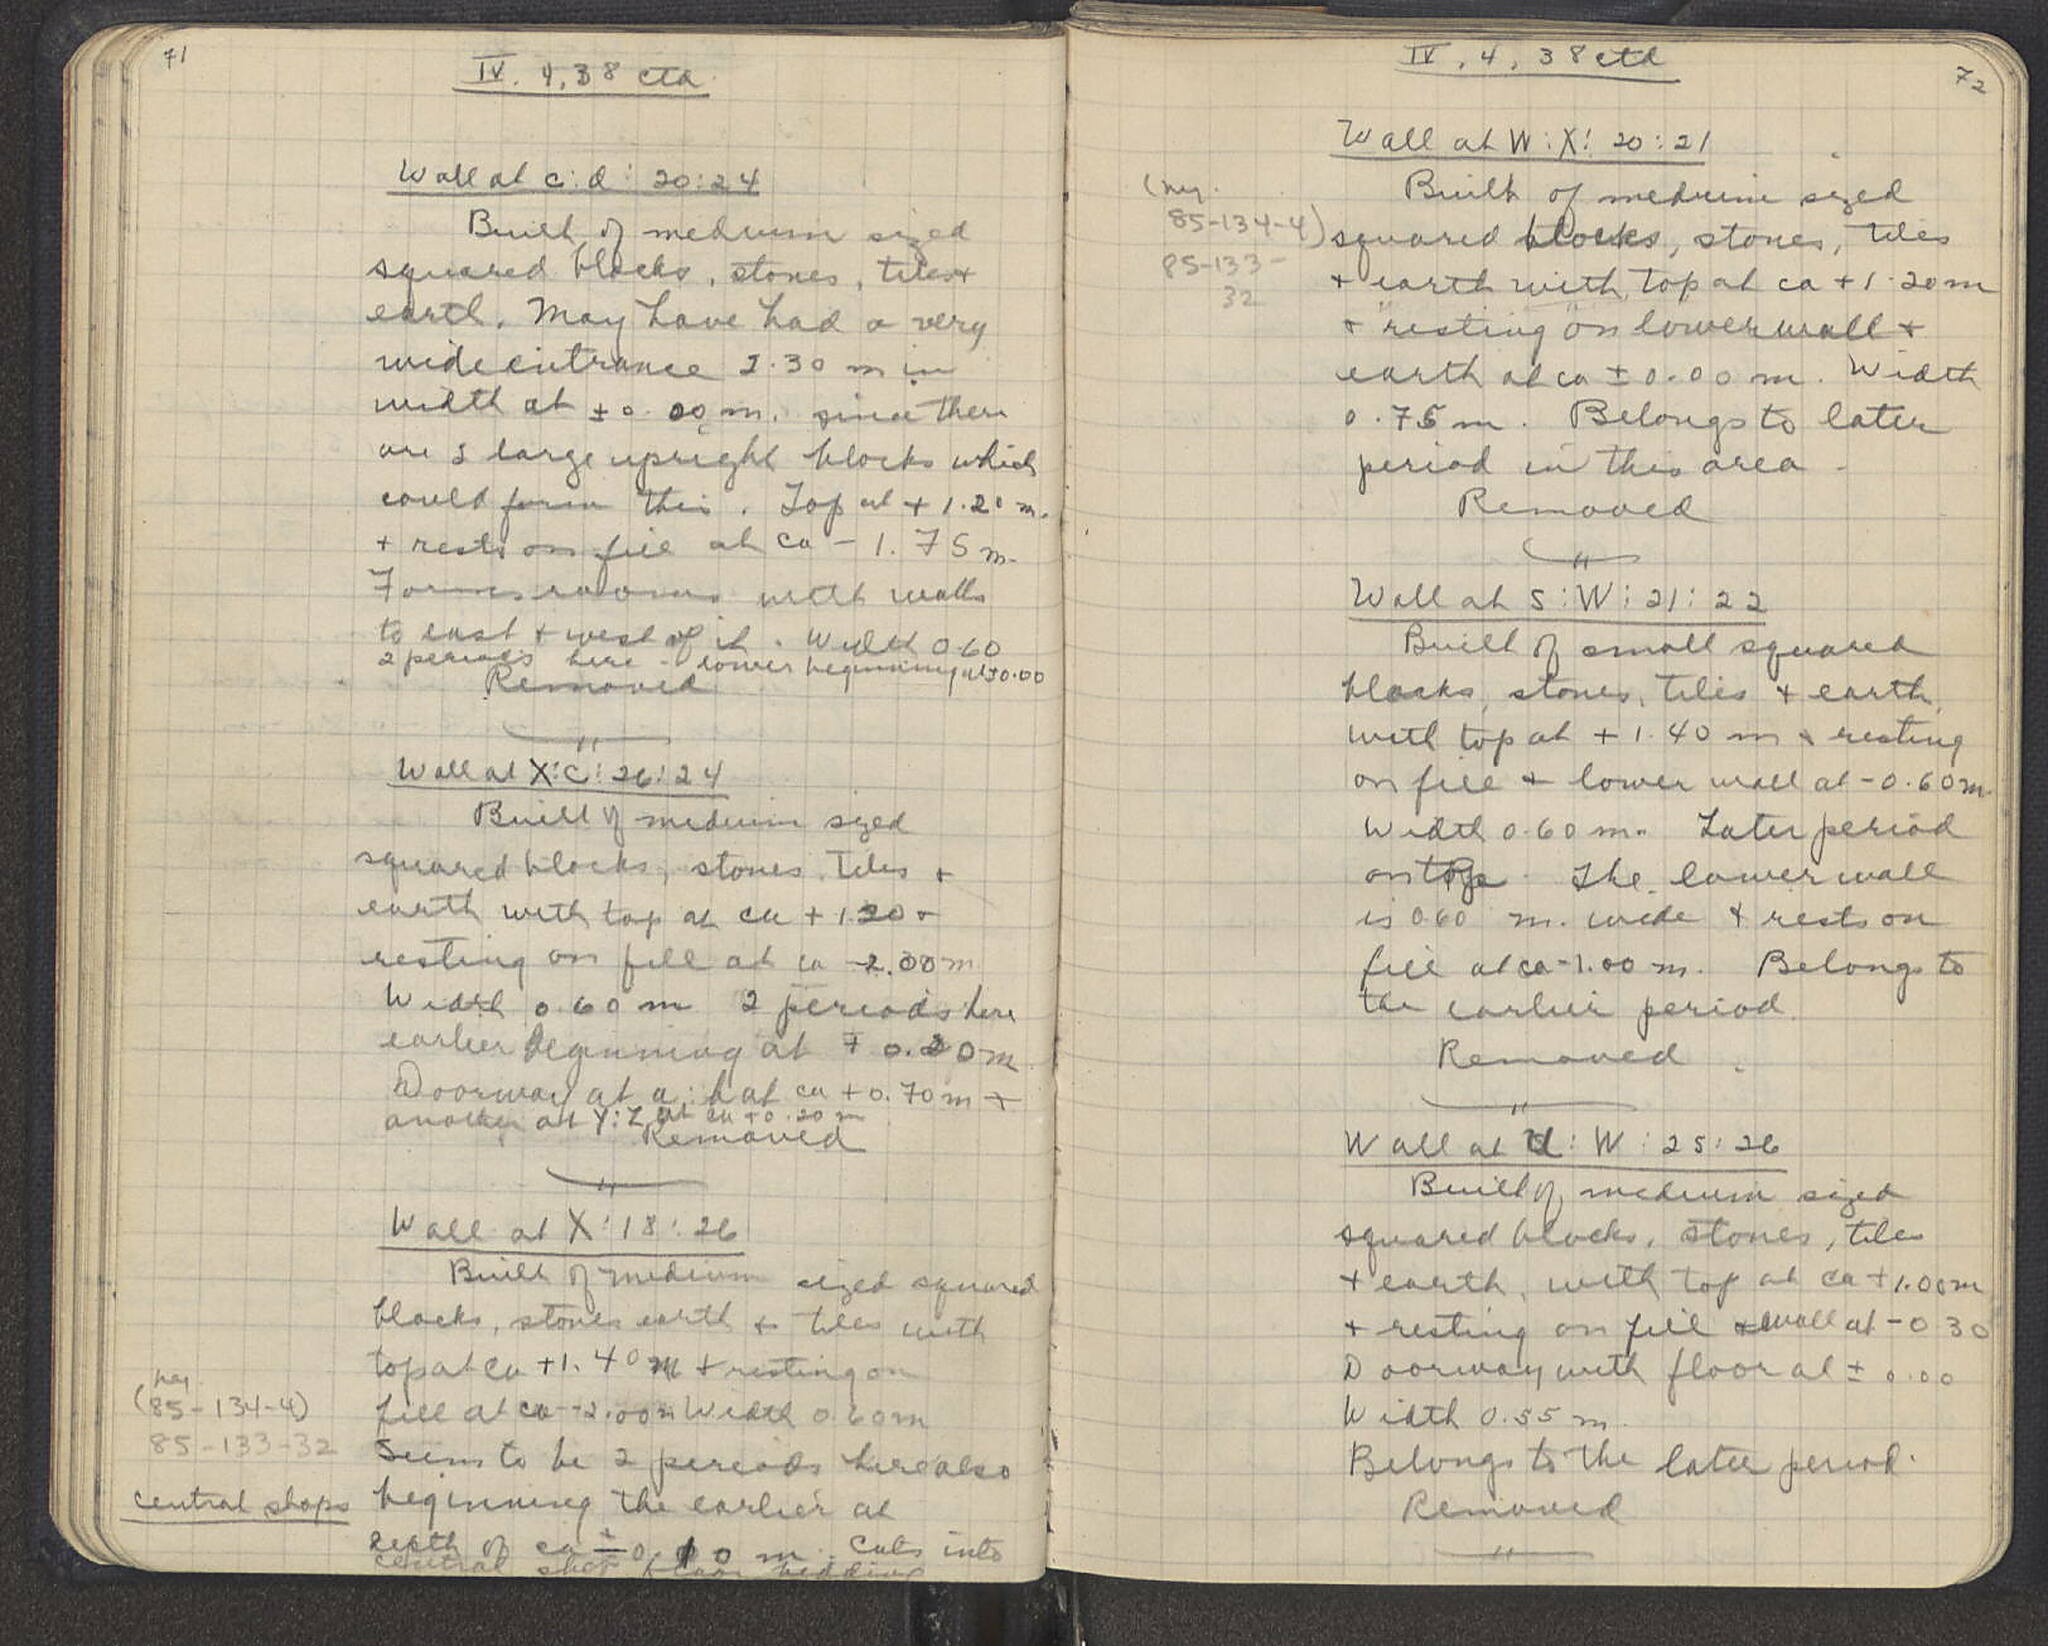 71
IV. 4, 38 ctd.
Wall at c:d: 20:24
Built of medium sized
squared blocks, stones, tiles +
earth. May have had a very
wide entrance 2.30 m in
width at ±0.00 m. since there
are 2 large upright blocks which
could form this. Top at + 1.20 m.
+ rests on fill at ca - 1.75 m.
Forms rooms with walls
to east + west of it. Width 0.60
2 periods here - lower beginning at ±0.00
Removed
"
Wall at X:C: 26:24
Built of medium sized
squared blocks, stones, tiles +
earth with top at ca + 1.20 +
resting on fill at ca -2.00 m
Width 0.60 m 2 periods here
earlier beginning at + 0.20 m
Doorway at a:b at ca + 0.70 m +
another at Y:Z at ca + 0.20 m
Removed
"
Wall at X: 18: 26
Built of medium sized squared
blocks, stones earth + tiles with
top at ca +1.40 m + resting on
fill at ca -2.00 m Width 0.60 m
Seems to be 2 periods here also
beginning the earlier at
depth of ca ± 0.10 m. Cuts into
central shop floor bedding
(neg.
85-134-4)
85-133-32
central shops
72
IV, 4, 38 ctd
Wall at W:X: 20:21
Built of medium sized
squared blocks, stones, tiles
+ earth with top at ca + 1.20 m
+ resting on lower wall +
earth at ca ± 0.00 m. Width
0.75 m. Belongs to later
period in this area.
Removed
"
(neg.
85-134-4)
85-133-
32
Wall at S:W: 21:22
Built of small squared
blocks, stones, tiles + earth,
with top at + 1.40 m + resting
on fill + lower wall at -0.60 m.
Width 0.60 m. Later period
on top. The lower wall
is 0.60 m. wide + rests on
fill at ca -1.00 m. Belongs to
the earlier period.
Removed.
"
Wall at U:W: 25:26
Built of medium sized
squared blocks, stones, tiles
+ earth, with top at ca + 1.00 m
+ resting on fill + wall at -0.30
Doorway with floor at ± 0.00
Width 0.55 m.
Belongs to the later period.
Removed
"